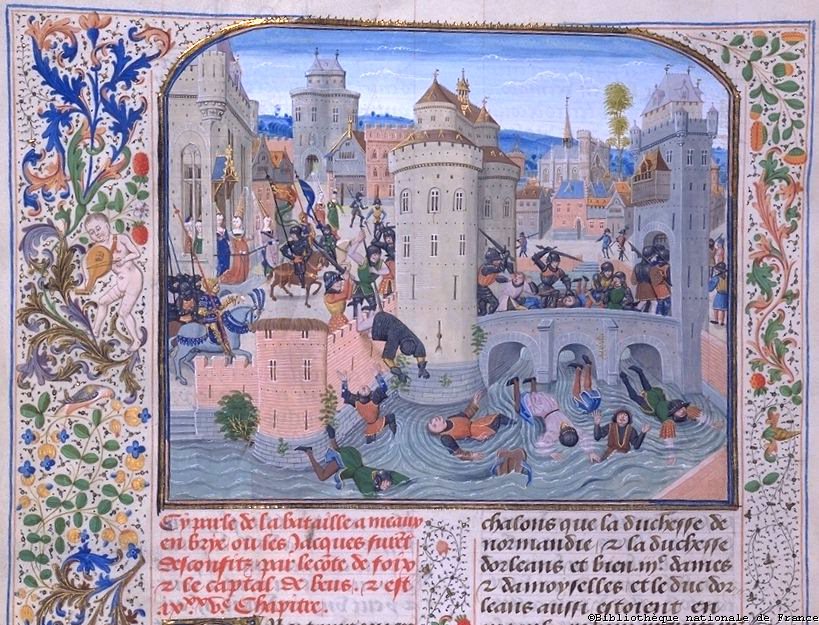 Cy parle de la bataille a meaux
en brye ou les Jacques furēt
desconfitz par le cōte de foix
& le captal de beus, & est
Chapitre.
chalons que la duchesse de
normandie & la duchesse
dorleans et bien .m͛. dames
& damoyselles et le duc dor
leans aussi estoient en
©Bibliothèque nationale de France